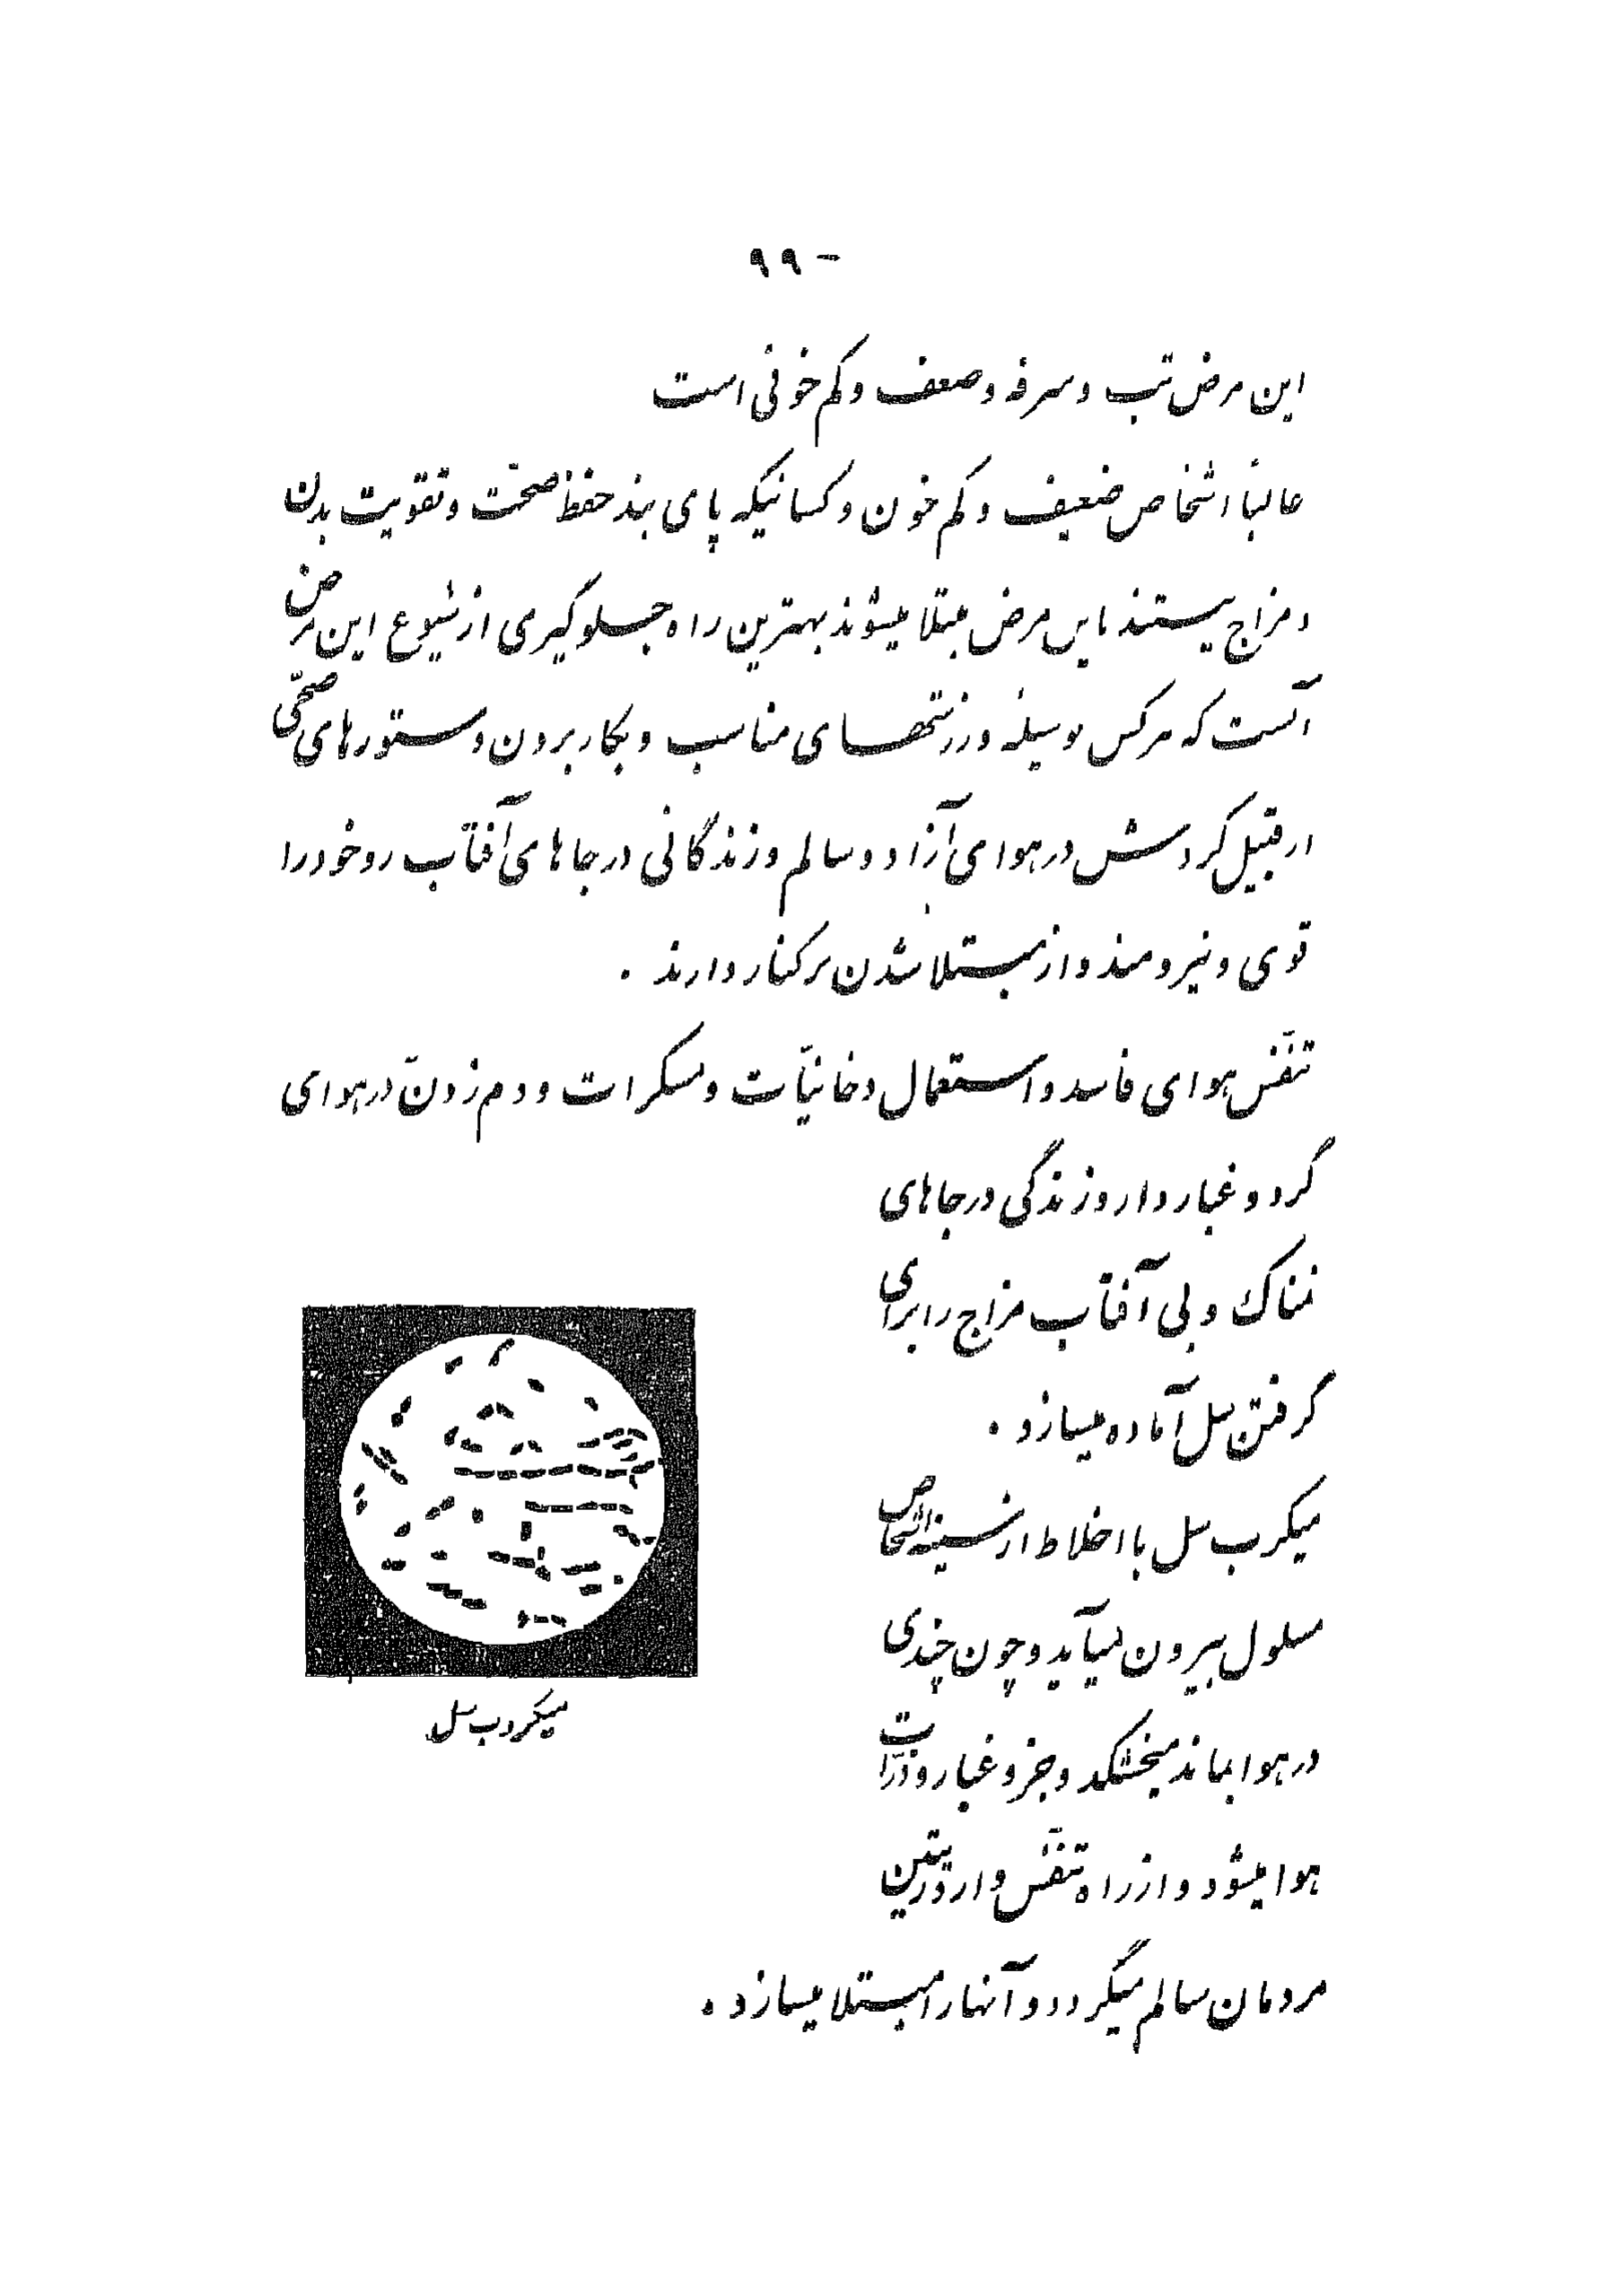 - ۹۹
این مرض تب و سرفه و ضعف و کم خونی است
غالباً اشخاص ضعیف و کم خون و کسانیکه پای بند حفظ صحّت و تقویت بدن
و مزاج نیستند باین مرض مبتلا میشوند بهترین راه جلوگیری از شیوع این مرض
آنست که هرکس بوسیله ورزشهای مناسب و بکار بردن دستورهای صحّی
از قبیل گردش در هوای آزاد و سالم و زندگانی در جاهای آفتاب رو خود را
قوی و نیرومند و از مبتلا شدن برکنار دارند .
تنفّس هوای فاسد و استعمال دخانیّات و مسکرات و دم زدن در هوای
گرد و غبار دار و زندگی در جاهای
نمناک و بی آفتاب مزاج را برای
گرفتن سل آماده میسازد .
میکرب سل با اخلاط از سینه اشخاص
مسلول بیرون میآید و چون چندی
در هوا بماند میخشکد و جزو غبار و ذرّات
هوا میشود و از راه تنفّس وارد ریتین
مردمان سالم میگردد و آنها را مبتلا میسازد .
میکروب سل